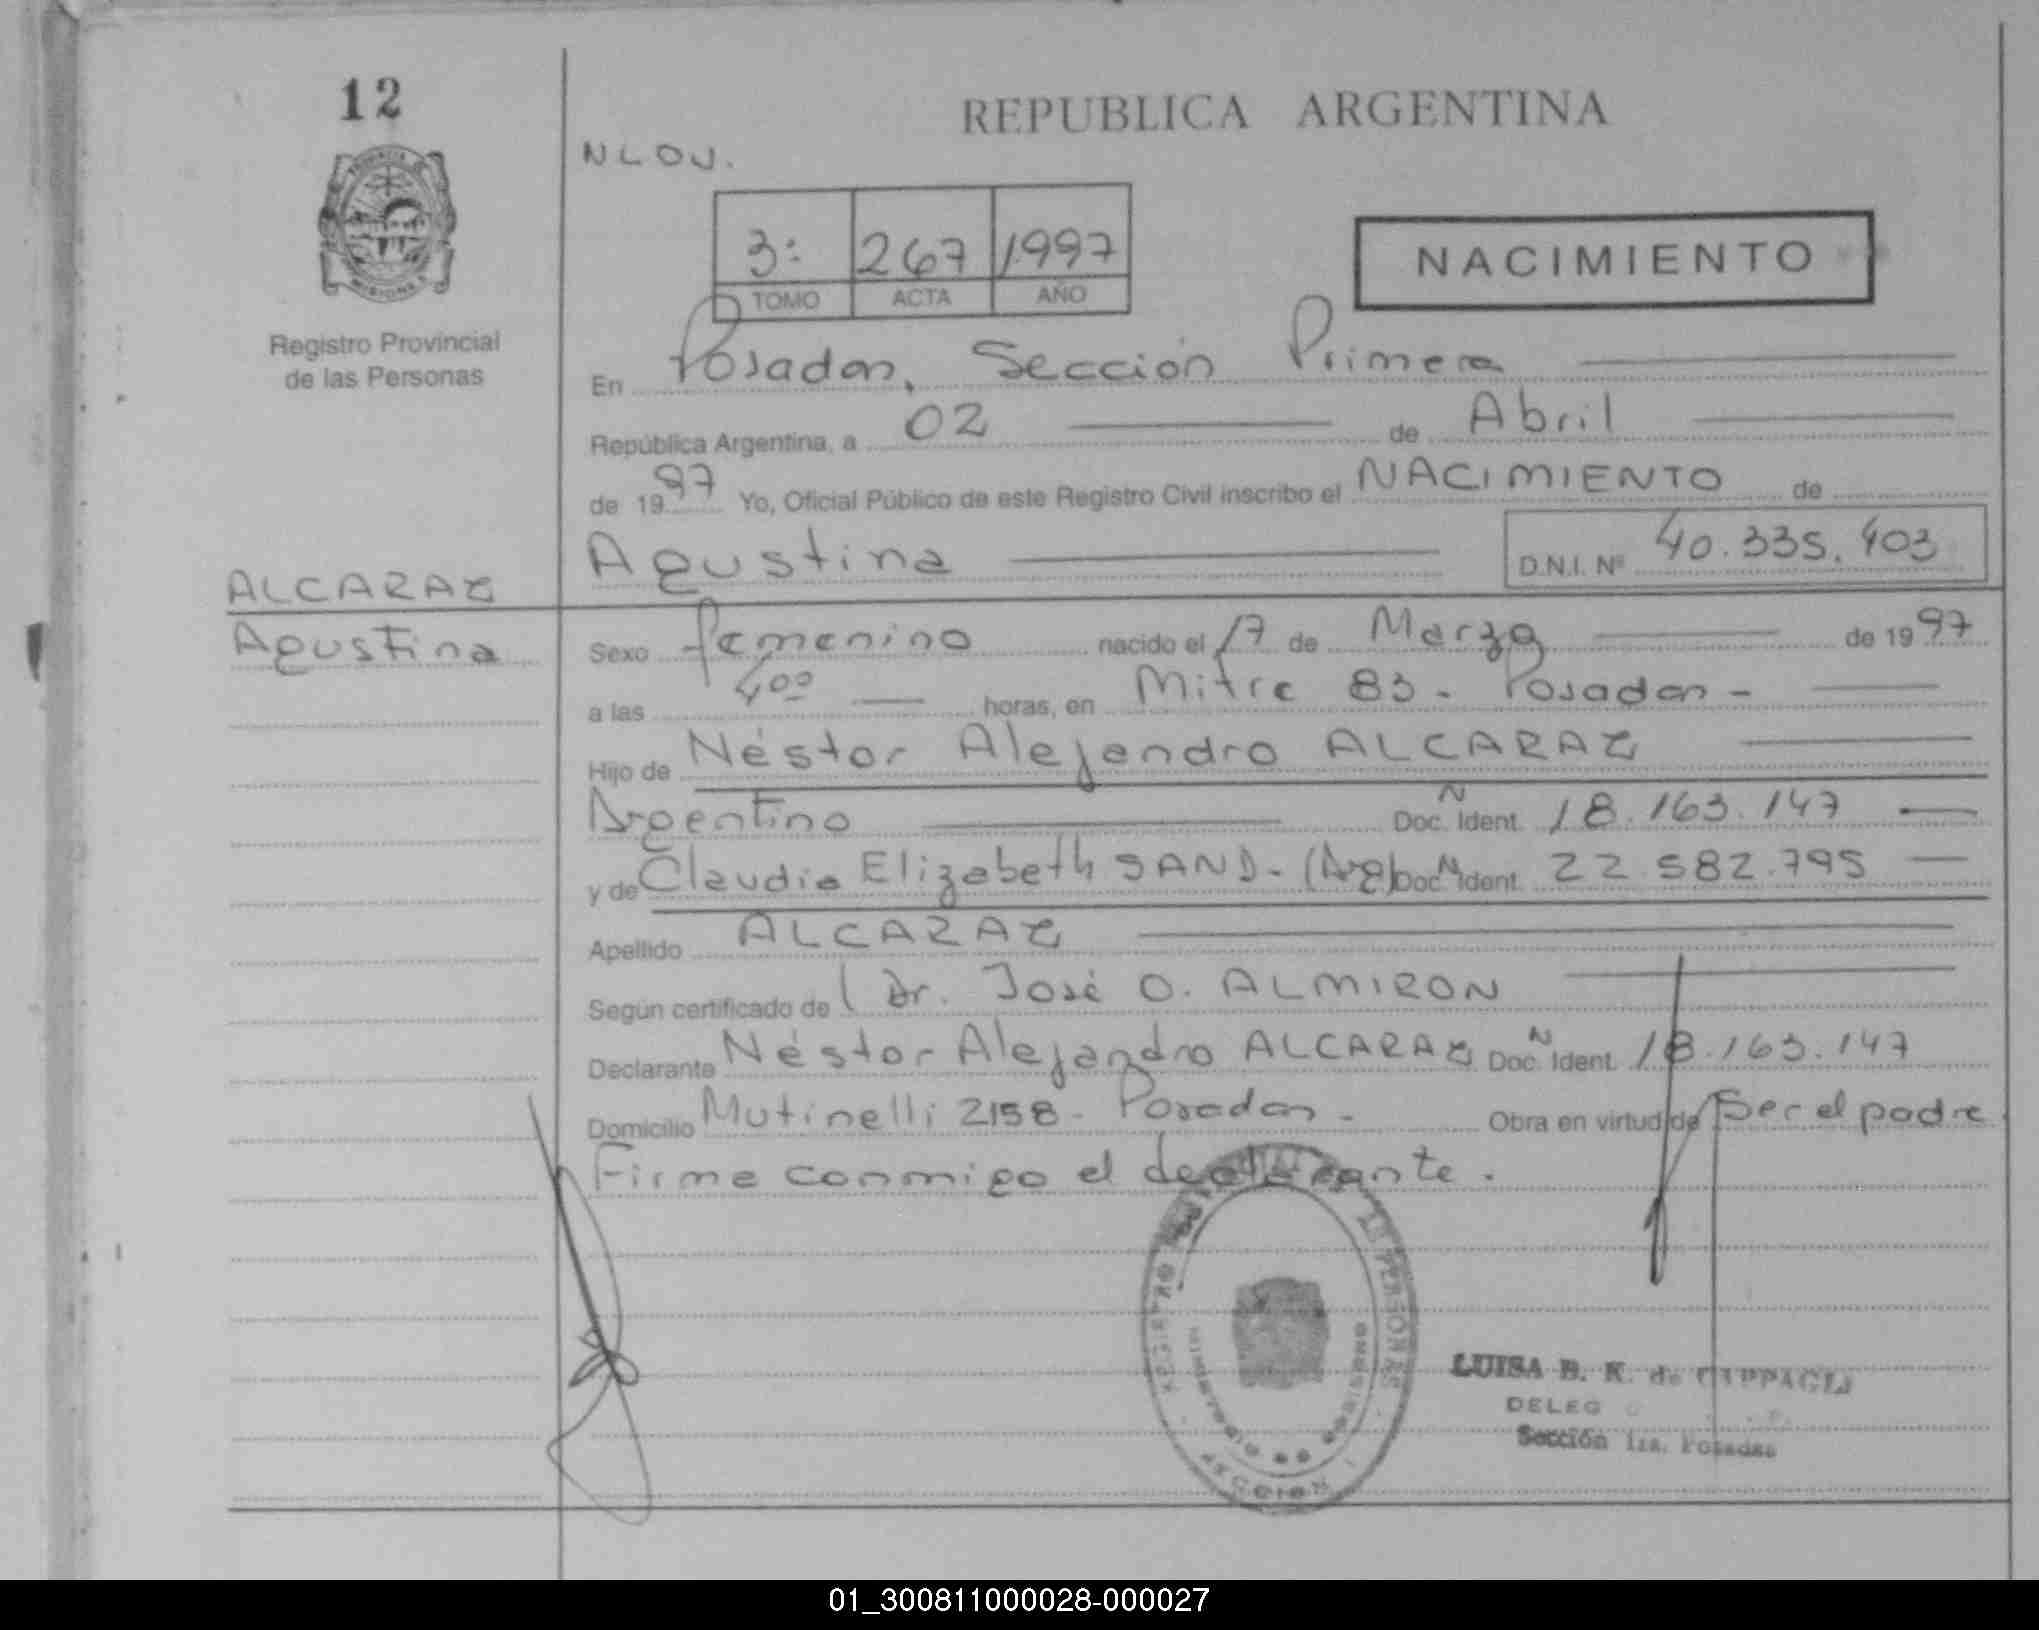 12
REPUBLICA ARGENTINA
NLOV.
3: 267 1997
TOMO ACTA AÑO
NACIMIENTO
Registro Provincial
de las Personas
En Posadas, Sección Primera
República Argentina, a 02 de Abril
de 1997 Yo, Oficial Público de este Registro Civil inscribo el NACIMIENTO de
Agustina D.N.I. Nº 40.335.403
ALCARAZ
Agustina
Sexo femenino nacido el 17 de Marzo de 1997
a las 4 00 horas, en Mitre 83 - Posadas -
Hijo de Néstor Alejandro ALCARAZ
Argentino Doc. N Ident. 18.163.147
y de Claudia Elizabeth SAND - (Arg) Doc. N Ident. 22.582.795
Apellido ALCARAZ
Según certificado de Dr. José O. ALMIRON
Declarante Néstor Alejandro ALCARAZ Doc. N Ident. 18.163.147
Domicilio Mutinelli 2158 - Posadas - Obra en virtud de ser el padre
Firma conmigo el declarante.
LUISA B. K. de
DELEG
Sección 1ra. Posadas
01_300811000028-000027